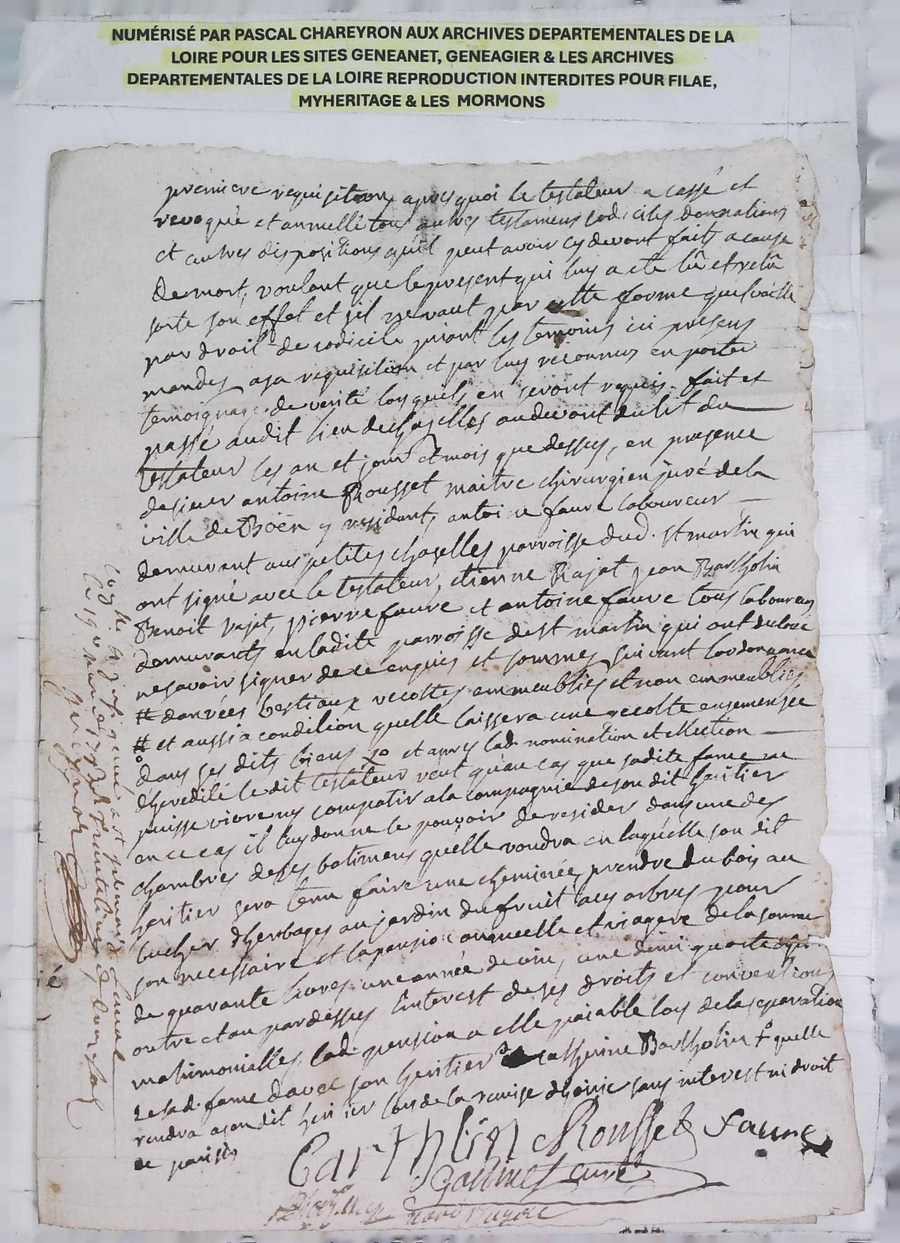 NUMÉRISÉ PAR PASCAL CHAREYRON AUX ARCHIVES DEPARTEMENTALES DE LA
LOIRE POUR LES SITES GENEANET, GENEAGIER & LES ARCHIVES
DEPARTEMENTALES DE LA LOIRE REPRODUCTION INTERDITES POUR FILAE,
MYHERITAGE & LES MORMONS
premiere requisition apres quoi le testateur a cassé et
revoquée et annullé tous autres testamens codiciles donnations
et autres dispositions quil peut avoir cy devant faits a cause
de mort, voulant que le present qui luy a eté lû et relû
sorte son effet et sil ne vaut par cette forme quel vaille
par droit de codicile priant les temoins ici presens
mandés a sa requisition et par luy reconnus en porter
temoignage de verité lorsquels en seront requis. fait et
passé audit lieu de chazelles audevant du lit du
testateur les an et jour et mois que dessus, en presence
de sieur antoine Rousset maitre chirurgien juré de la
ville de Boën y residant, antoine faure laboureur
demeurant aux petites chazelles parroisse dud. st martin qui
ont signé avec le testateur, etienne Rajat jean Bartholin
Benoit rajat, pierre faure et antoine faure tous laboureurs
demeurants en ladite parroisse de st martin qui ont declaré
ne savoir signer de ce enquis et sommés suivant lordonnance
# danrées bestiaux recoltes emmeublies et non emmeublies
# et aussi a condition quelle laissera une recolte ensemensée
dans ses dits biens et apres lad. nomination et election
dheredité le dit testateur veut qu'au cas que sadite fame ne
puisse vivre ny compatir a la compagnie de son dit heritier
en ce cas il luy donne le pouvoir de resider dans une des
chambres de ses batimens quelle voudra en laquelle son dit
heritier sera tenu faire une cheminée, prendre du bois au
bucher dherbages au jardin du fruit aux arbres pour
son necessaire et la pension annuelle et viagere de la somme
de quarante livres une année de vin, une demi quarte
outre et au pardessus linterest de ses droits et conventions
matrimonialles, lad. pension a elle paiable lors de la separation
de lad. fame davec son heritier catherine Bartholin quelle
rendra a son dit heritier lors de la remise dhoirie sans interest ni droit
de
Bartholin Rousset faure
curé